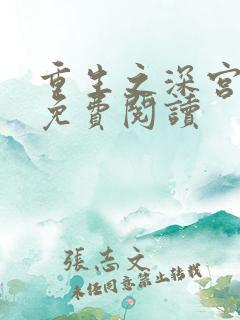 重生之深宫
免費閱讀
張志文
未经同意禁止转载